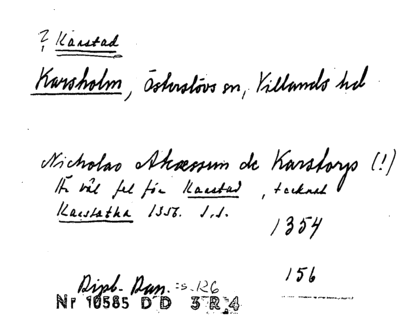 ? Karstad
Karsholm, Österslövs sn, Villands hd
Nicholao Akæssun de Karstorp (!)
Är väl fel för Karstad, tecknat
Karstatha 1356. S.d.
1354
156
Dipl. Dan. :s. 126
Nr 10585 D D 3 R 4